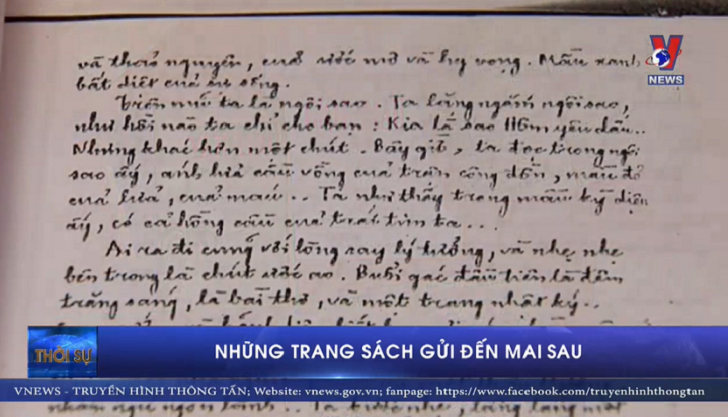 và thảo nguyên, của ước mơ và hy vọng. Mầu xanh
bất diệt của sự sống.
V NEWS
Trên mũ ta là ngôi sao. Ta lặng ngắm ngôi sao,
như hồi nào ta chỉ cho bạn: Kia là sao Hôm yêu dấu..
Nhưng khác hơn một chút. Bây giờ, ta đọc trong ngôi
sao ấy, ánh lửa cầu vồng của trận công đồn, màu đỏ
của lửa, của máu.. Ta như thấy trong màu kỳ diệu
ấy, có cả hồng cầu của trái tim ta...
Ai ra đi cũng với lòng say lý tưởng, và nhẹ nhẹ
bên trong là chút ước ao. Buổi gác đầu tiên là đêm
trăng sáng, là bài thơ, và một trang nhật ký..
THỜI SỰ
NHỮNG TRANG SÁCH GỬI ĐẾN MAI SAU
VNEWS - TRUYỀN HÌNH THÔNG TẤN; Website: vnews.gov.vn; fanpage: https://www.facebook.com/truyenhinhthongtan